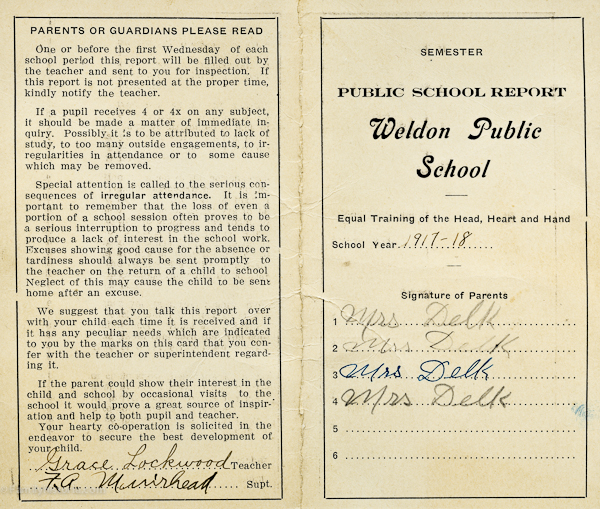 PARENTS OR GUARDIANS PLEASE READ
One or before the first Wednesday of each
school period this report will be filled out by
the teacher and sent to you for inspection. If
this report is not presented at the proper time,
kindly notify the teacher.
If a pupil receives 4 or 4x on any subject,
it should be made a matter of immediate in-
quiry. Possibly it is to be attributed to lack of
study, to too many outside engagements, to ir-
regularities in attendance or to some cause
which may be removed.
Special attention is called to the serious con-
sequences of irregular attendance. It is im-
portant to remember that the loss of even a
portion of a school session often proves to be
a serious interruption to progress and tends to
produce a lack of interest in the school work.
Excuses showing good cause for the absence or
tardiness should always be sent promptly to
the teacher on the return of a child to school
Neglect of this may cause the child to be sent
home after an excuse.
We suggest that you talk this report over
with your child each time it is received and if
it has any peculiar needs which are indicated
to you by the marks on this card that you con-
fer with the teacher or superintendent regard-
ing it.
If the parent could show their interest in the
child and school by occasional visits to the
school it would prove a great source of inspir-
ation and help to both pupil and teacher.
Your hearty co-operation is solicited in the
endeavor to secure the best development of
your child.
Grace Lockwood Teacher
F.A. Muirhead Supt.
SEMESTER
PUBLIC SCHOOL REPORT
Weldon Public
School
Equal Training of the Head, Heart and Hand
School Year 1917-18
Signature of Parents
1 Mrs Delk
2 Mrs Delk
3 Mrs. Delk
4 Mrs Delk
5
6